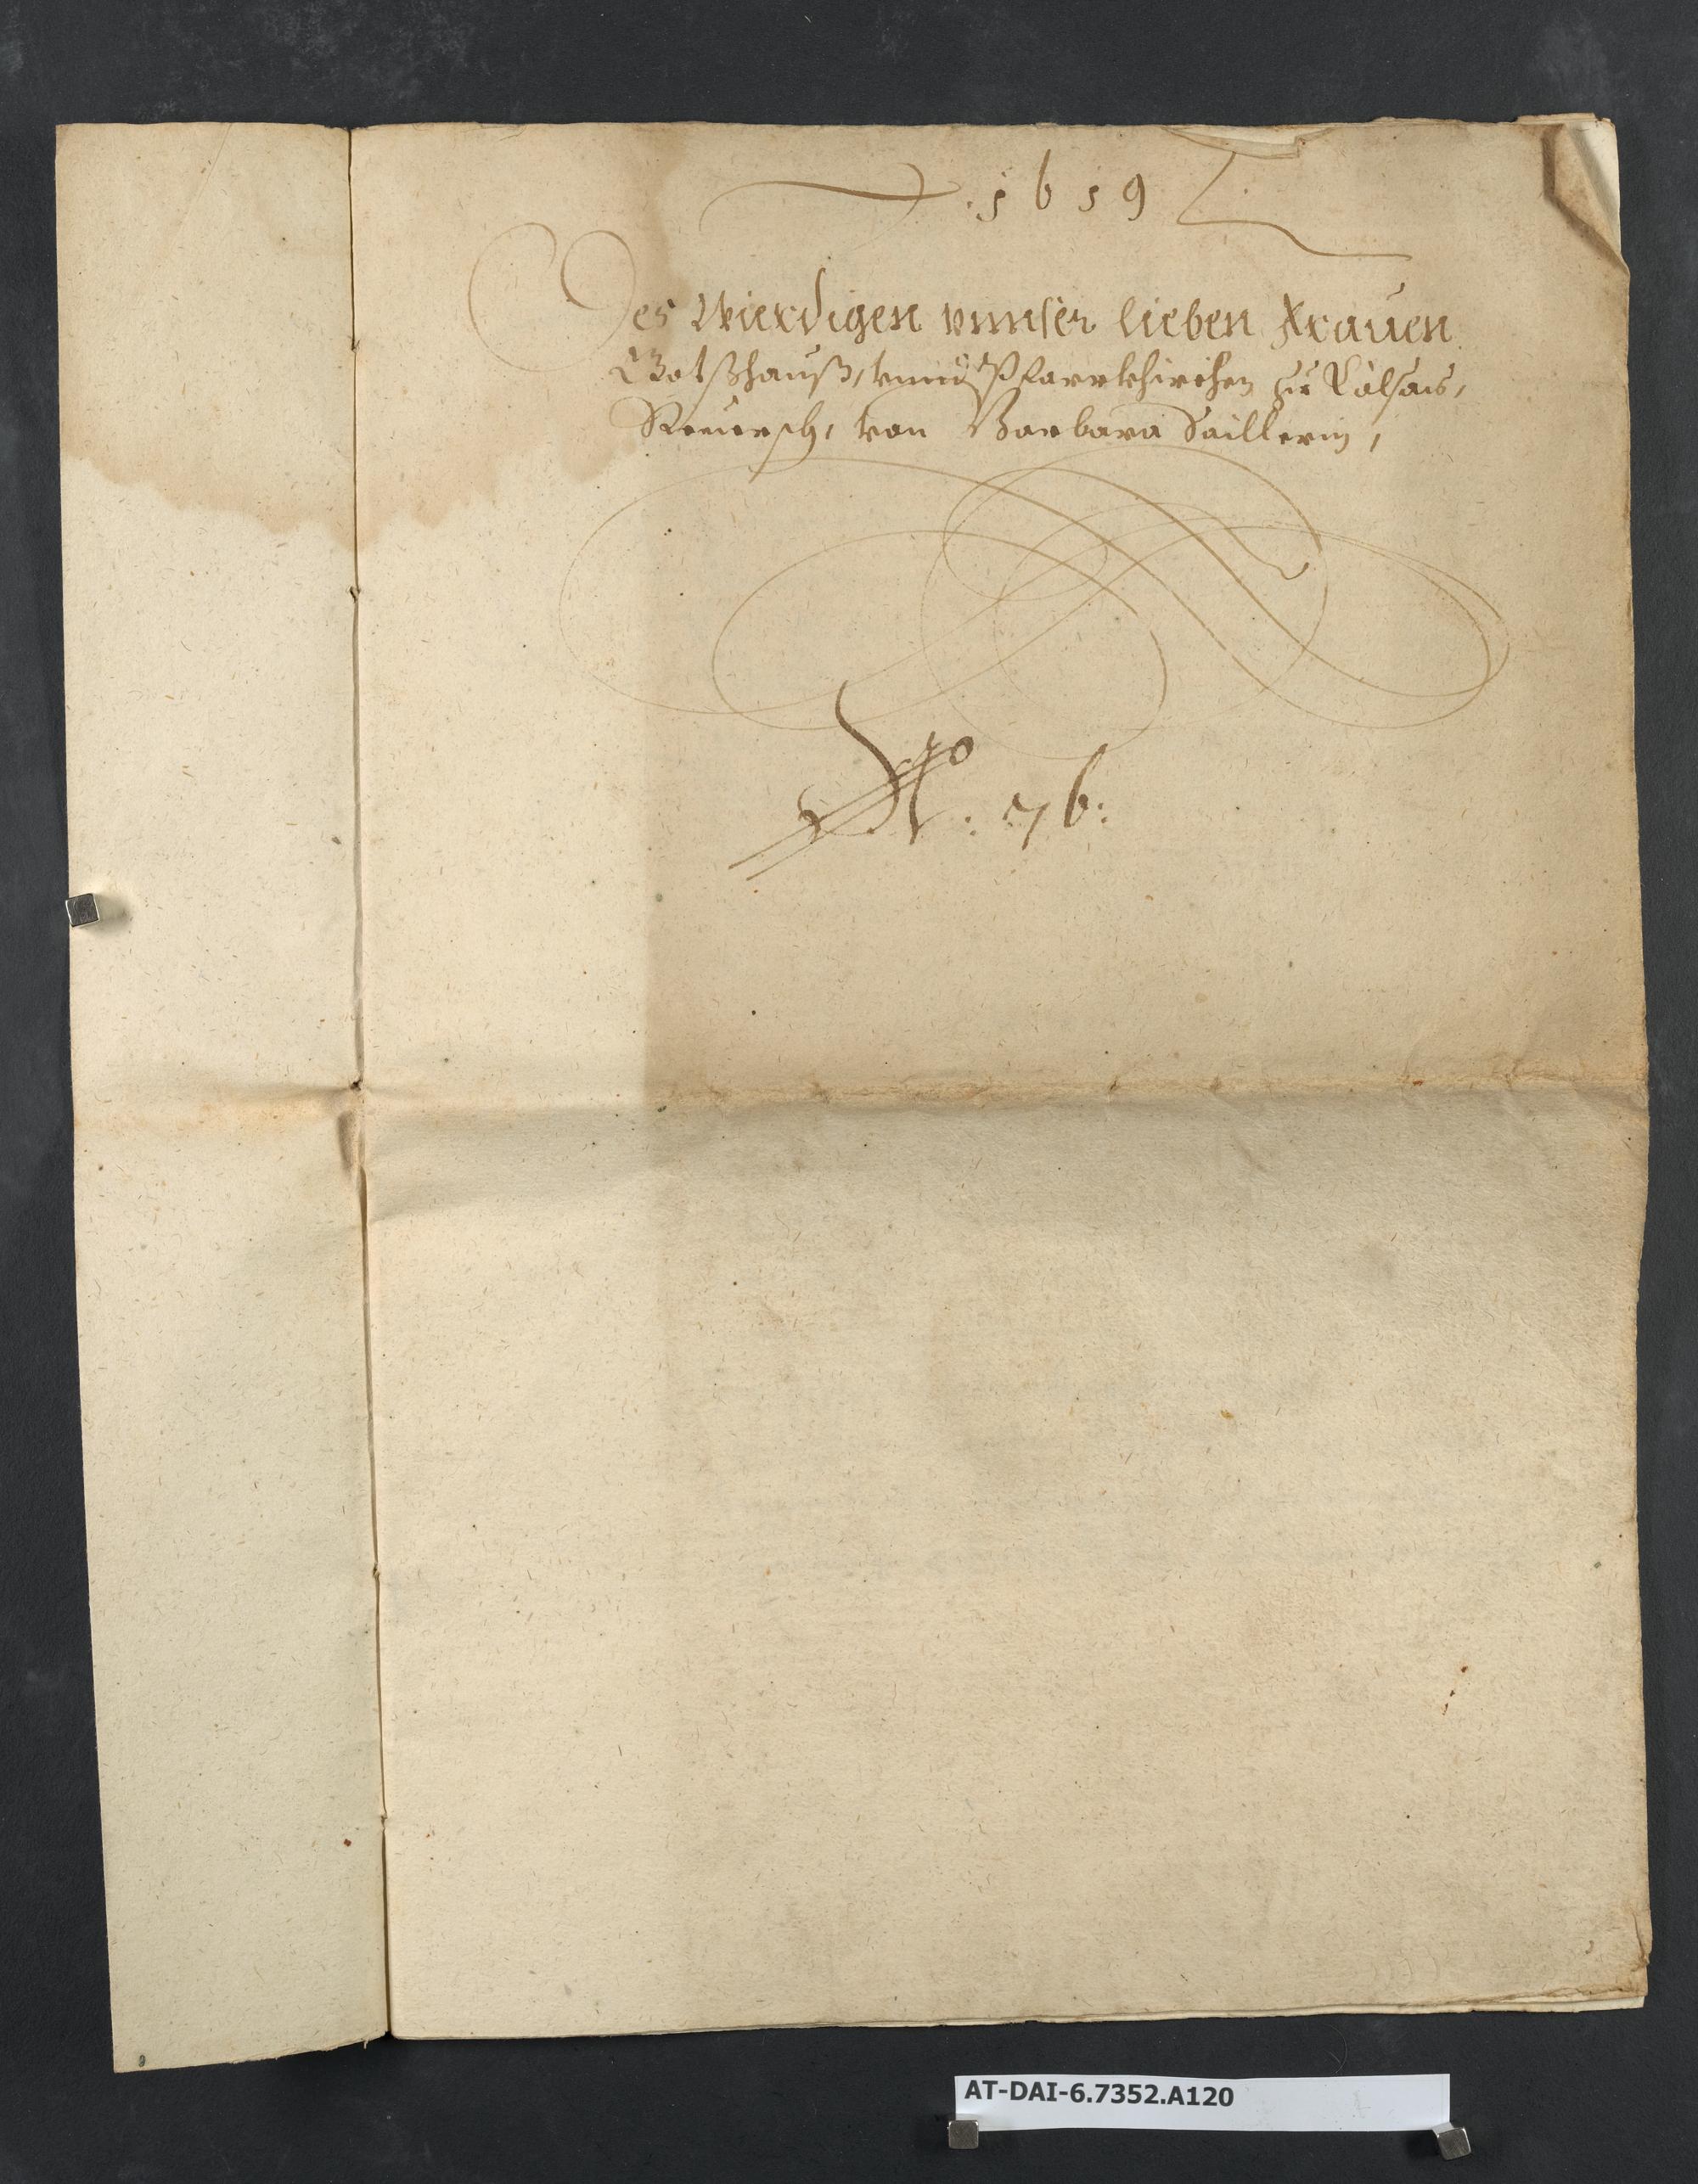 .1619
Des Wierdigen vnnser lieben Frauen
Gotßhauß, vnnd Pfarrkhirchen zu Kolsass,
Reuersch, von Barbara Saillerin,
No: 76:
AT-DAI-6.7352.A120